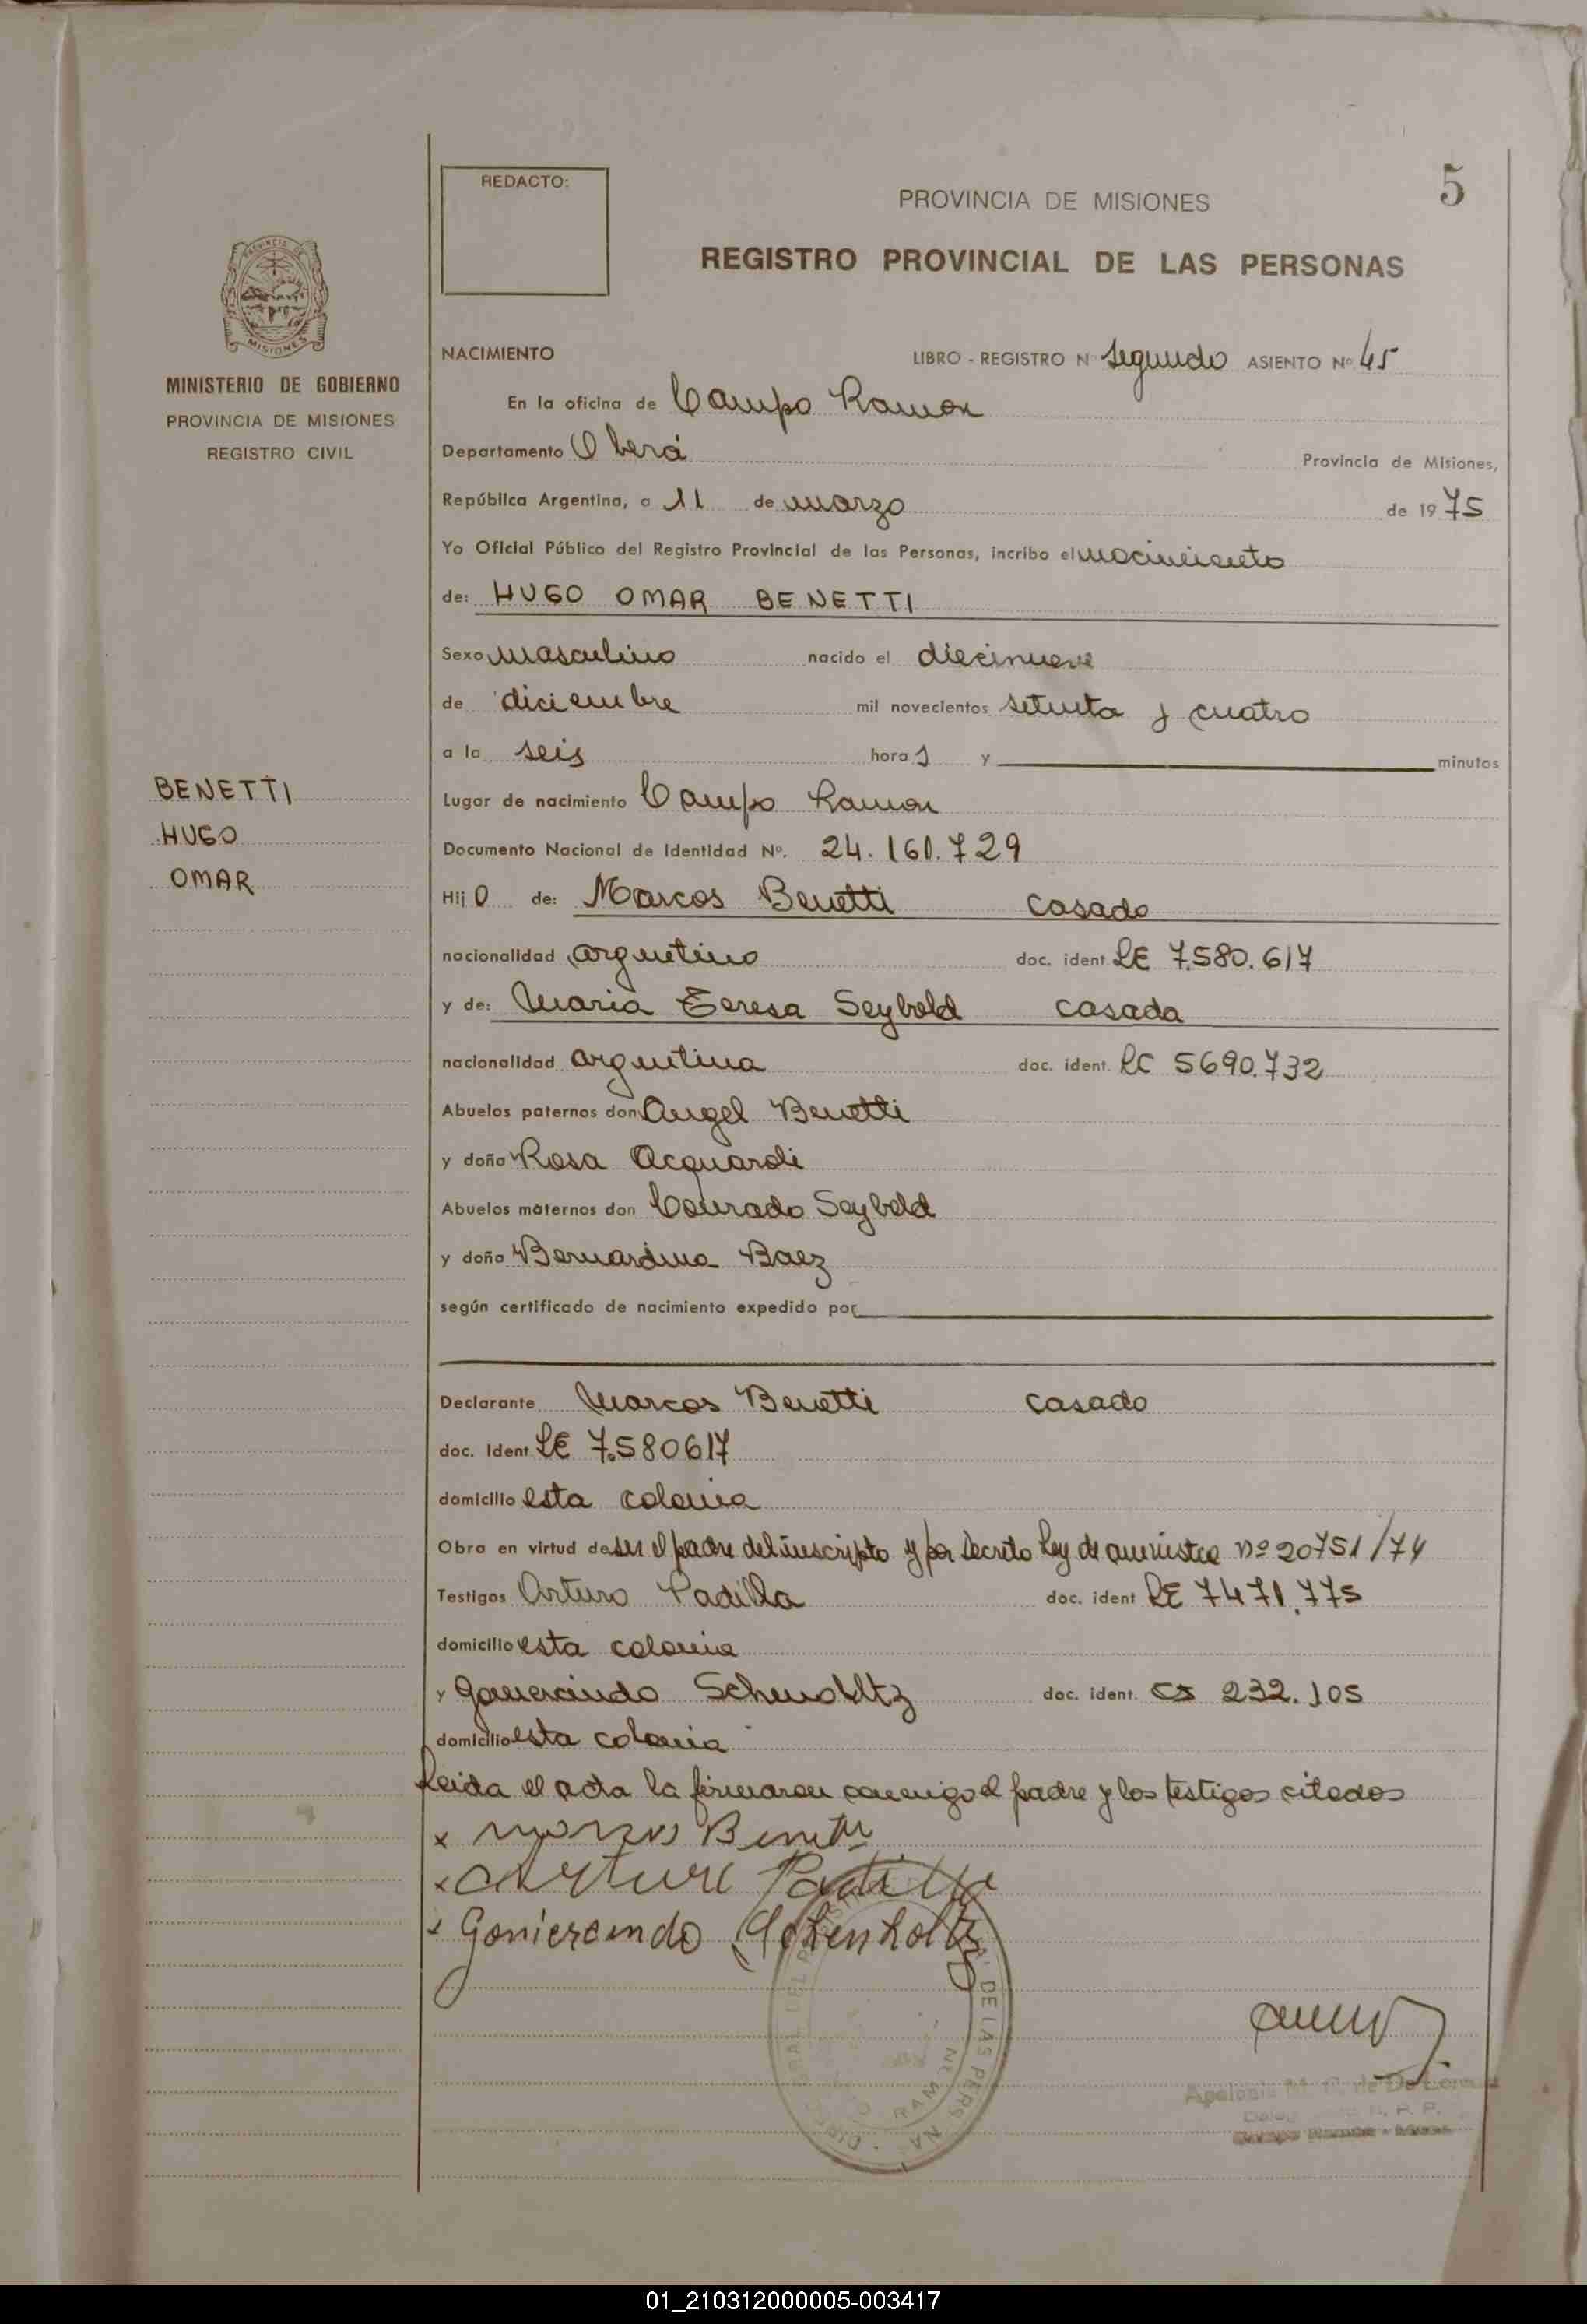 5
REDACTO:
PROVINCIA DE MISIONES
REGISTRO PROVINCIAL DE LAS PERSONAS
MISIONES
MINISTERIO DE GOBIERNO
PROVINCIA DE MISIONES
REGISTRO CIVIL
NACIMIENTO LIBRO - REGISTRO N segundo ASIENTO Nº 45
En la oficina de Campo Ramon
Departamento Oberá Provincia de Misiones,
República Argentina, a 11 de marzo de 1975
Yo Oficial Público del Registro Provincial de las Personas, incribo el nacimiento
de: HUGO OMAR BENETTI
Sexo masculino nacido el diecinueve
de diciembre mil novecientos setenta y cuatro
a la seis horas y minutos
BENETTI
HUGO
OMAR
Lugar de nacimiento Campo Ramon
Documento Nacional de Identidad Nº. 24.161.729
Hijo de: Marcos Benetti casado
nacionalidad argentino doc. ident. LE 7.580.617
y de: Maria Teresa Seybold casada
nacionalidad argentina doc. ident. LC 5690.732
Abuelos paternos don Angel Benetti
y doña Rosa Acquardi
Abuelos maternos don Conrado Seybold
y doña Bernardina Baez
según certificado de nacimiento expedido por
Declarante Marcos Benetti casado
doc. Ident LE 7.580617
domicilio esta colonia
Obra en virtud de ser el padre del inscripto y por decreto Ley de amnistia nº 20751/74
Testigos Arturo Padilla doc. ident LE 7471.775
domicilio esta colonia
y Gomercindo doc. ident. 232.105
domicilio esta colonia
Leida el acta la firmaron conmigo el padre y los testigos citados
x Marcos Benetti
x Arturo Padilla
x Gomercindo Schenholtz
DE LAS PERSONAS
Apolonia M.
Campo Ramón - Mnes.
01_210312000005-003417